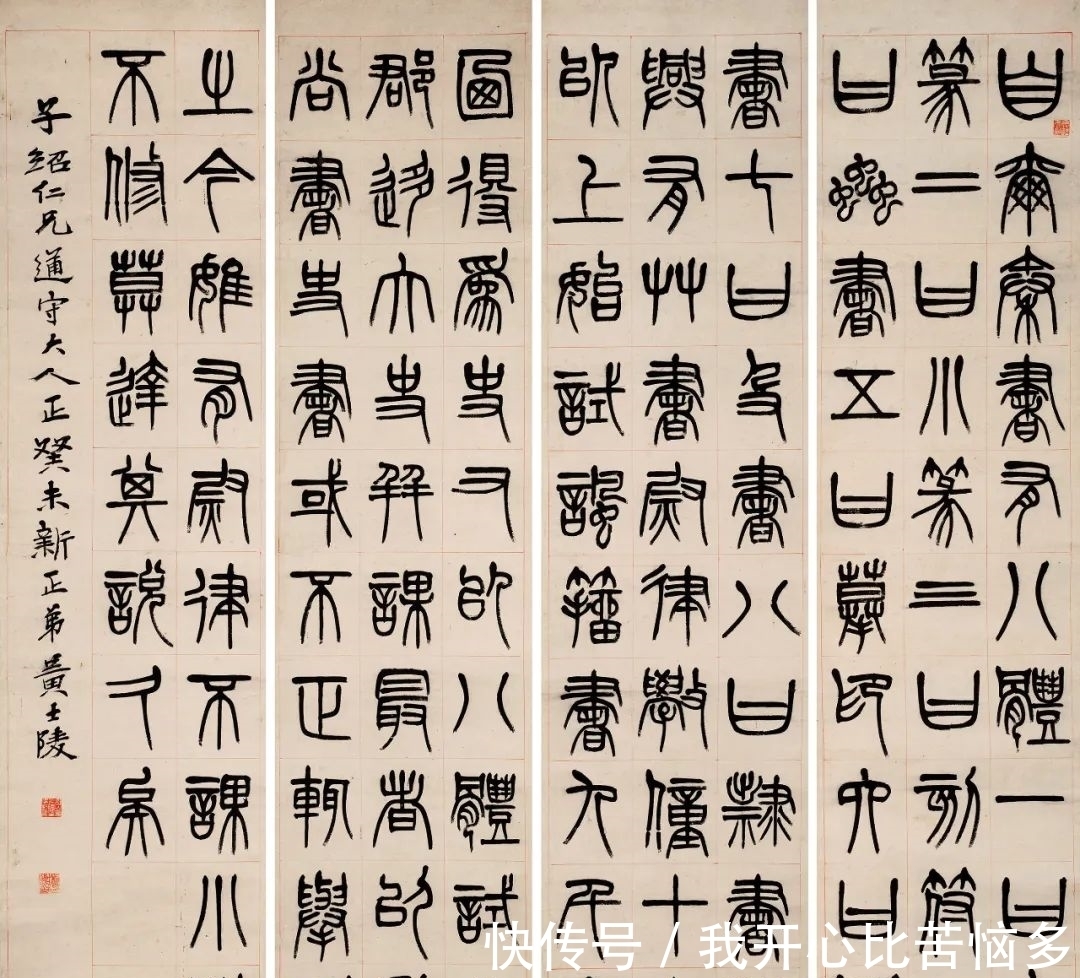 自爾秦書有八體一曰
篆二曰小篆三曰刻符
曰蟲書五曰摹印六曰
書七曰殳書八曰隸書
興有艸書尉律學僮十
以上始試諷籀書九千
得為史又以八體試
郡移大史并課最者以
尚書史書或不正輒舉
之今雖有尉律不課小
不修莫達其說久矣
子紹仁兄道守大人正癸未新正弟黃士陵
快传号 / 我开心比苦恼多